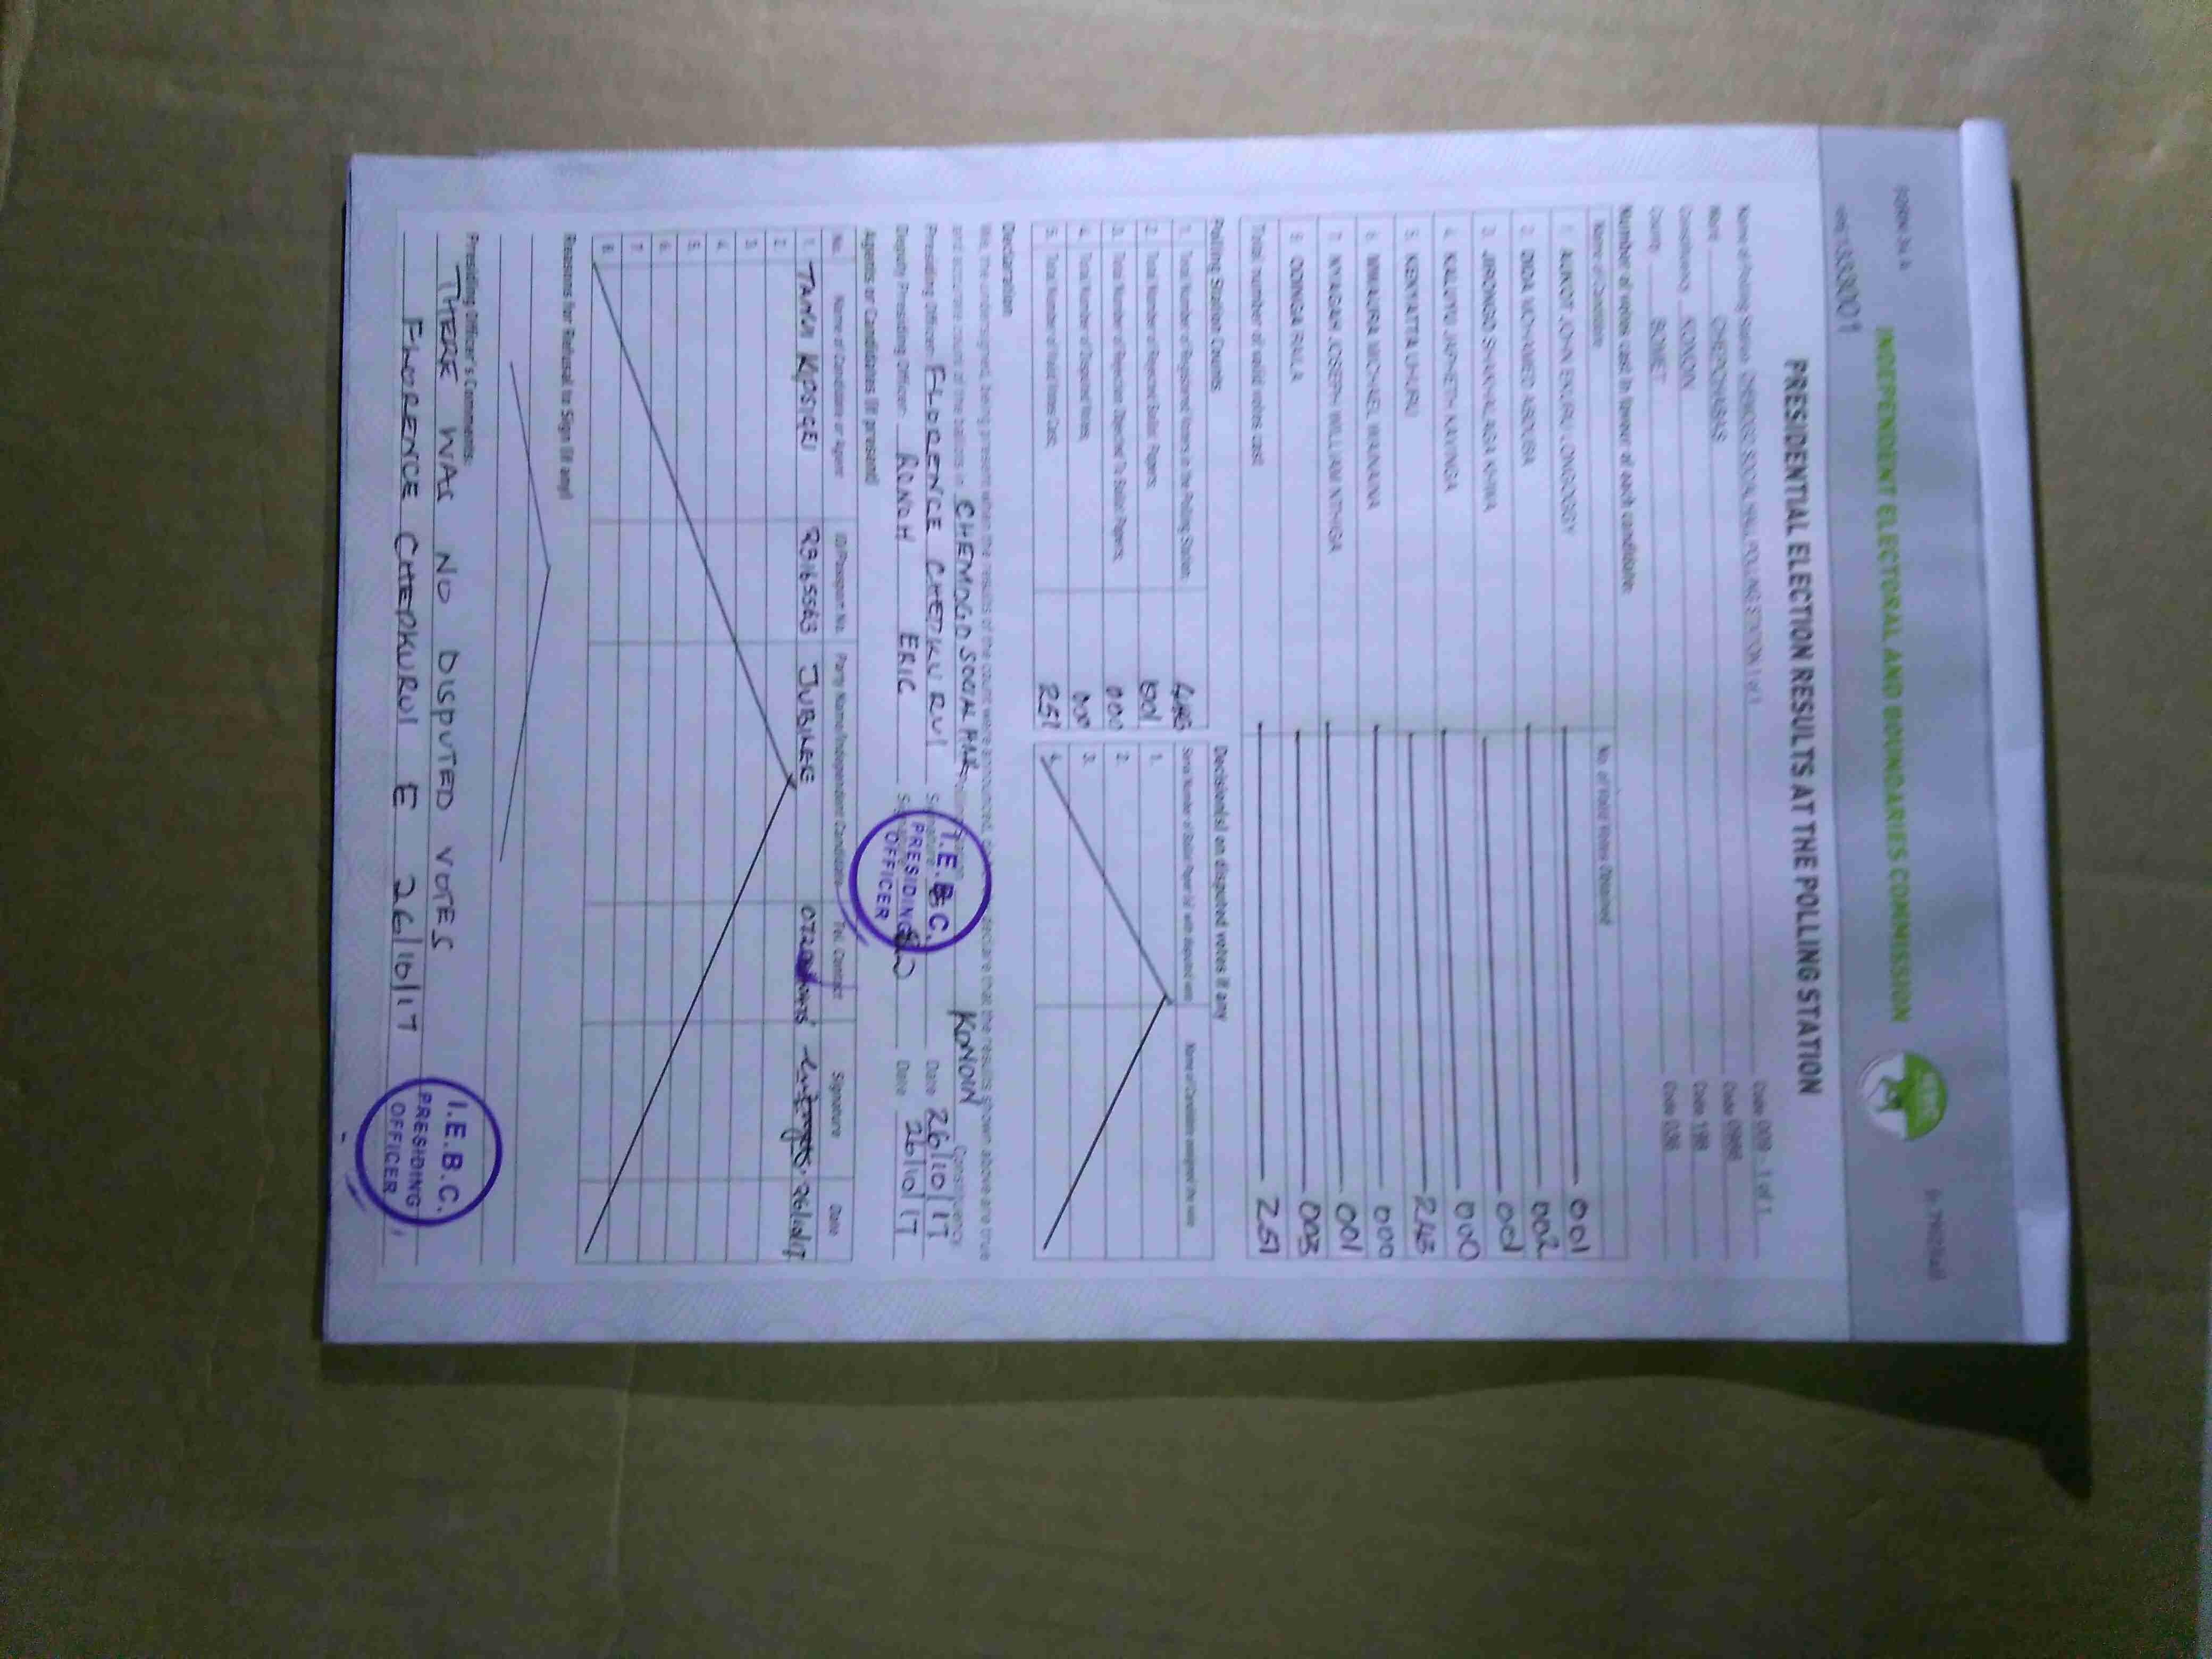 FORM 34 A
INDEPENDENT ELECTORAL AND BOUNDARIES COMMISSION
PRESIDENTIAL ELECTION RESULTS AT THE POLLING STATION
Name of Polling Station SOCIAL HALL POLLING STATION 1 of 1 Code 009 - 1 of 1
Ward CHEPCHABAS Code
Constituency KONOIN Code
County BOMET Code 036
Number of votes cast in favour of each candidate:
Name of Candidate No. of Valid Votes Obtained
1. AUKOT JOHN EKURU LONGOGGY 001
2. DIDA MOHAMED ABDUBA 002
3. JIRONGO SHAKHALAGA KHWA 001
4. KALUYU JAPHETH KAVINGA 000
5. KENYATTA UHURU 243
6. MWAURA MICHAEL WAINAINA 000
7. NYAGAH JOSEPH WILLIAM NTHIGA 001
8. ODINGA RAILA 003
Total number of valid votes cast 251
Polling Station Counts Decision(s) on disputed votes if any
1. Total Number of Registered Voters in the Polling Station;
2. Total Number of Rejected Ballot Papers; 001
3. Total Number of Rejection Objected To Ballot Papers; 000
4. Total Number of Disputed Votes; 000
5. Total Number of Valid Votes Cast; 251
Serial Number of Ballot Paper (s) with disputed vote Name of Candidate assigned the vote
1.
2.
3.
4.
Declaration
We, the undersigned, being present when the results of the count were announced, do declare that the results shown above are true
and accurate count of the ballots in CHEMOGO SOCIAL HALL KONOIN Constituency
Presiding Officer: FLORENCE CHEPKURUI Date 26/10/17
Deputy Presiding Officer: RONOH ERIC Date 26/10/17
I.E.B.C.
PRESIDING
OFFICER
Agents or Candidates (if present)
No. Name of Candidate or Agent ID/Passport No. Party Name/Independent Candidate Tel. Contact Signature Date
1. TANUI KIPSIGEI 23165563 JUBILEE 26/10/17
2.
3.
4.
5.
6.
7.
8.
Reasons for Refusal to Sign (if any)
Presiding Officer's Comments:
THERE WAS NO DISPUTED VOTES
FLORENCE CHEPKURUI E 26/10/17
I.E.B.C.
PRESIDING
OFFICER